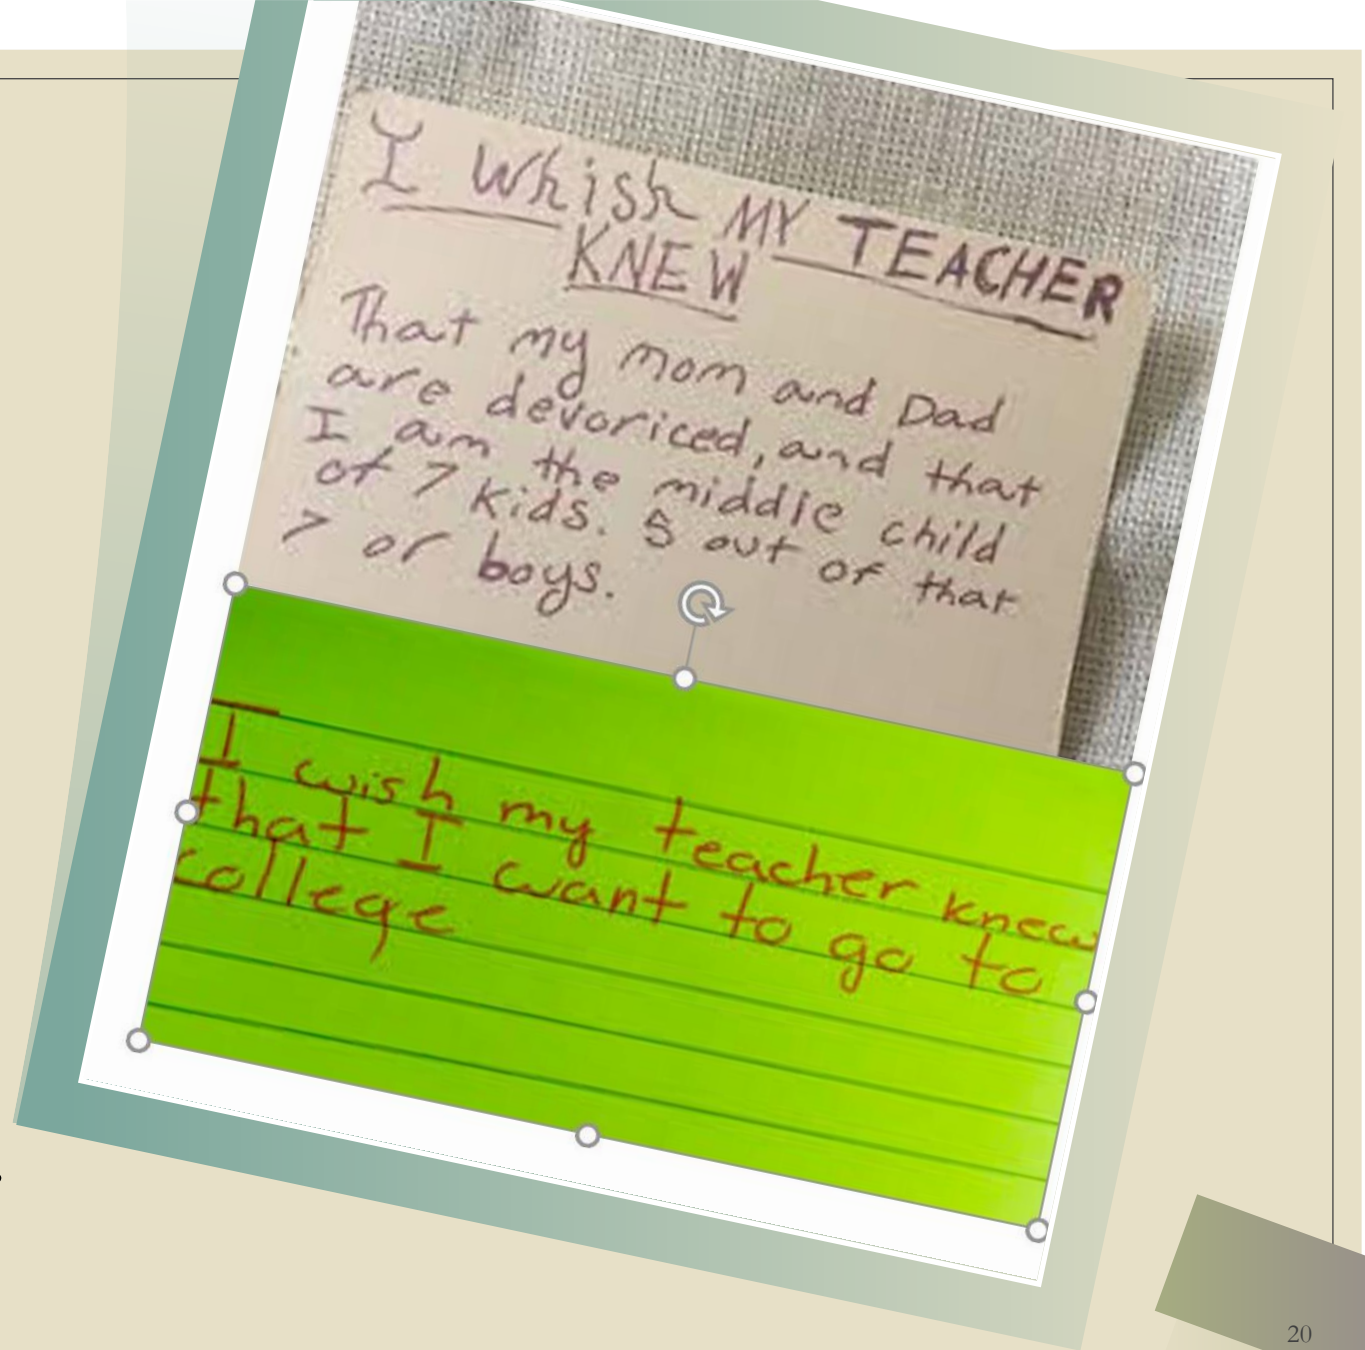 I Whish MY TEACHER
KNEW
That my mom and Dad
are devoriced, and that
I am the middle child
of 7 kids. 5 out of that
7 or boys.
I wish my teacher knew
that I want to go to
college
20